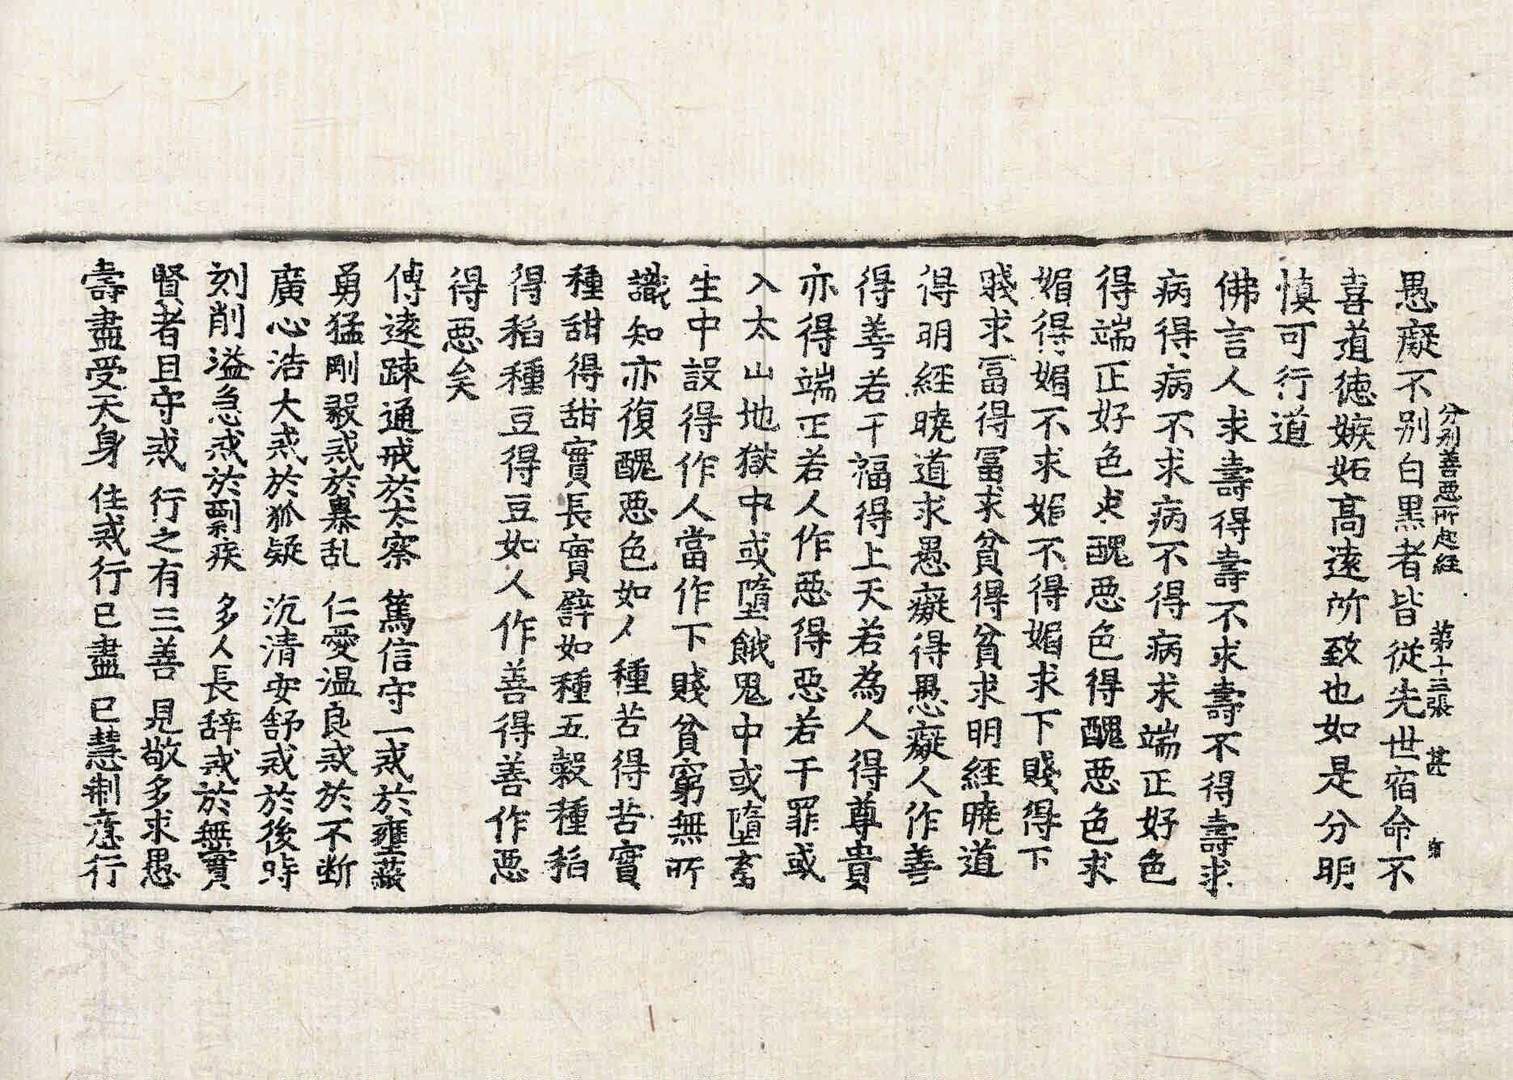 分別善惡所起經　第十三張　甚
愚癡不別白黑者皆從先世宿命不
喜道徳嫉妬高遠所致也如是分明
慎可行道
佛言人求壽得壽不求壽不得壽求
病得病不求病不得病求端正好色
得端正好色求醜惡色得醜惡色求
媚得媚不求媚不得媚求下賤得下
賤求冨得冨求貧得貧求明經曉道
得明經曉道求愚癡得愚癡人作善
得善若干福得上天若為人得尊貴
亦得端正若人作惡得惡若干罪或
入太山地獄中或墮餓鬼中或墮畜
生中設得作人當作下賤貧窮無所
識知亦復醜惡色如人種苦得苦實
種甜得甜實長實辟如種五穀種稻
得稻種豆得豆如人作善得善作惡
得惡矣
傅遠踈通戒於太察　篤信守一戒於壅蔽
勇猛剛毅戒於暴乱　仁愛温良戒於不断
廣心浩大戒於狐疑　沉清安舒戒於後時
刻削溢急戒於剽疾　多人長辞戒於無實
賢者且守戒　行之有三善　見敬多求愚
壽盡受天身　住戒行已盡　已慧制意行